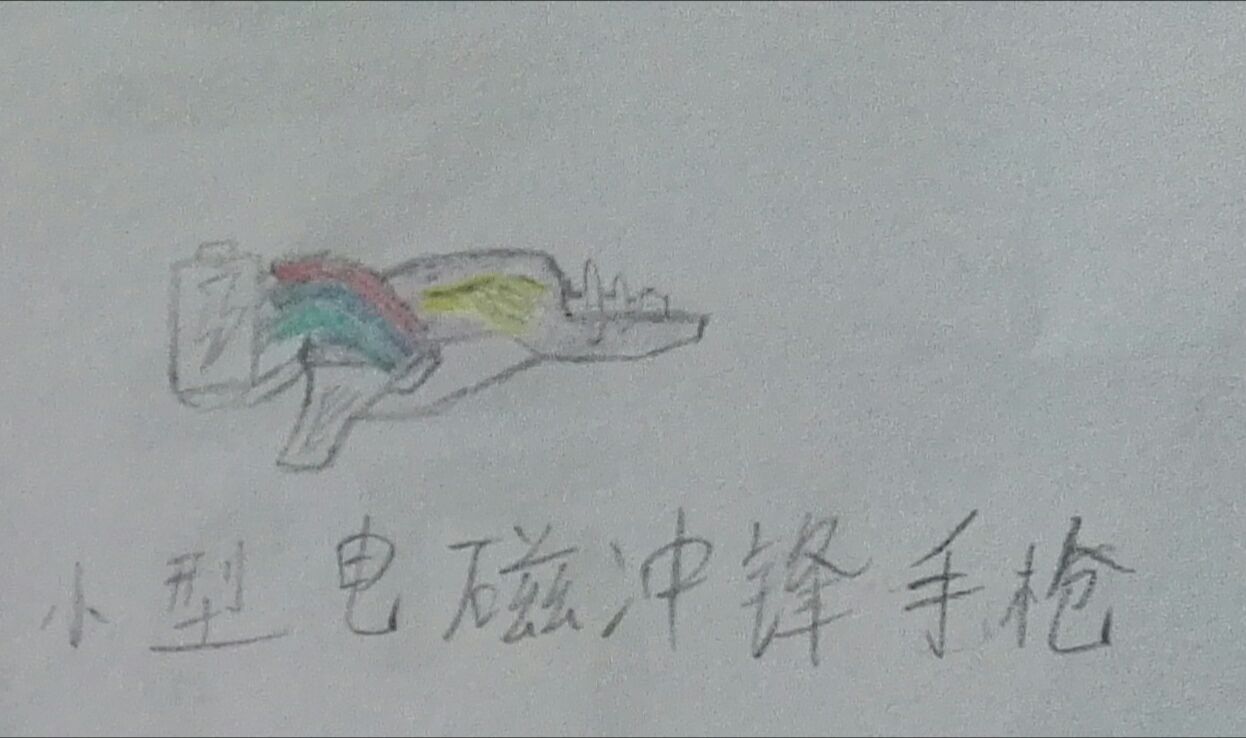 小型电磁冲锋手枪